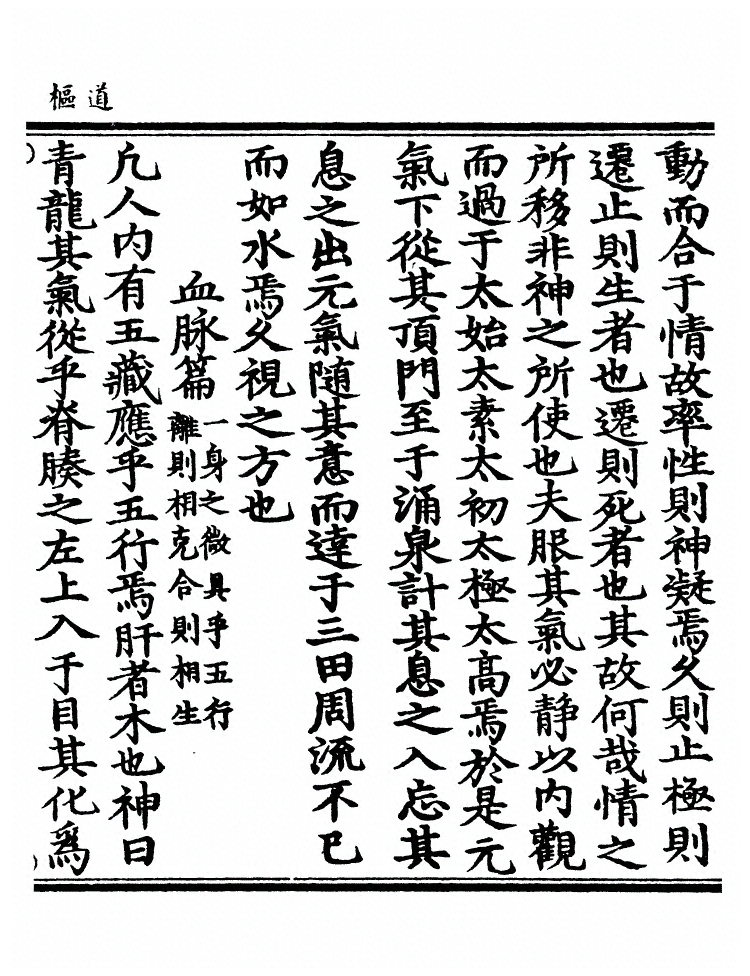 道樞
動而合于情故率性則神凝焉久則止極則
遷止則生者也遷則死者也其故何哉情之
所移非神之所使也夫服其氣必靜以内觀
而過于太始太素太初太極太高焉於是元
氣下從其頂門至于涌泉計其息之入忘其
息之出元氣隨其意而達于三田周流不已
而如水焉久視之方也
血脉篇
一身之微具乎五行
離則相克合則相生
凡人内有五藏應乎五行焉肝者木也神曰
青龍其氣從乎脊腠之左上入于目其化爲